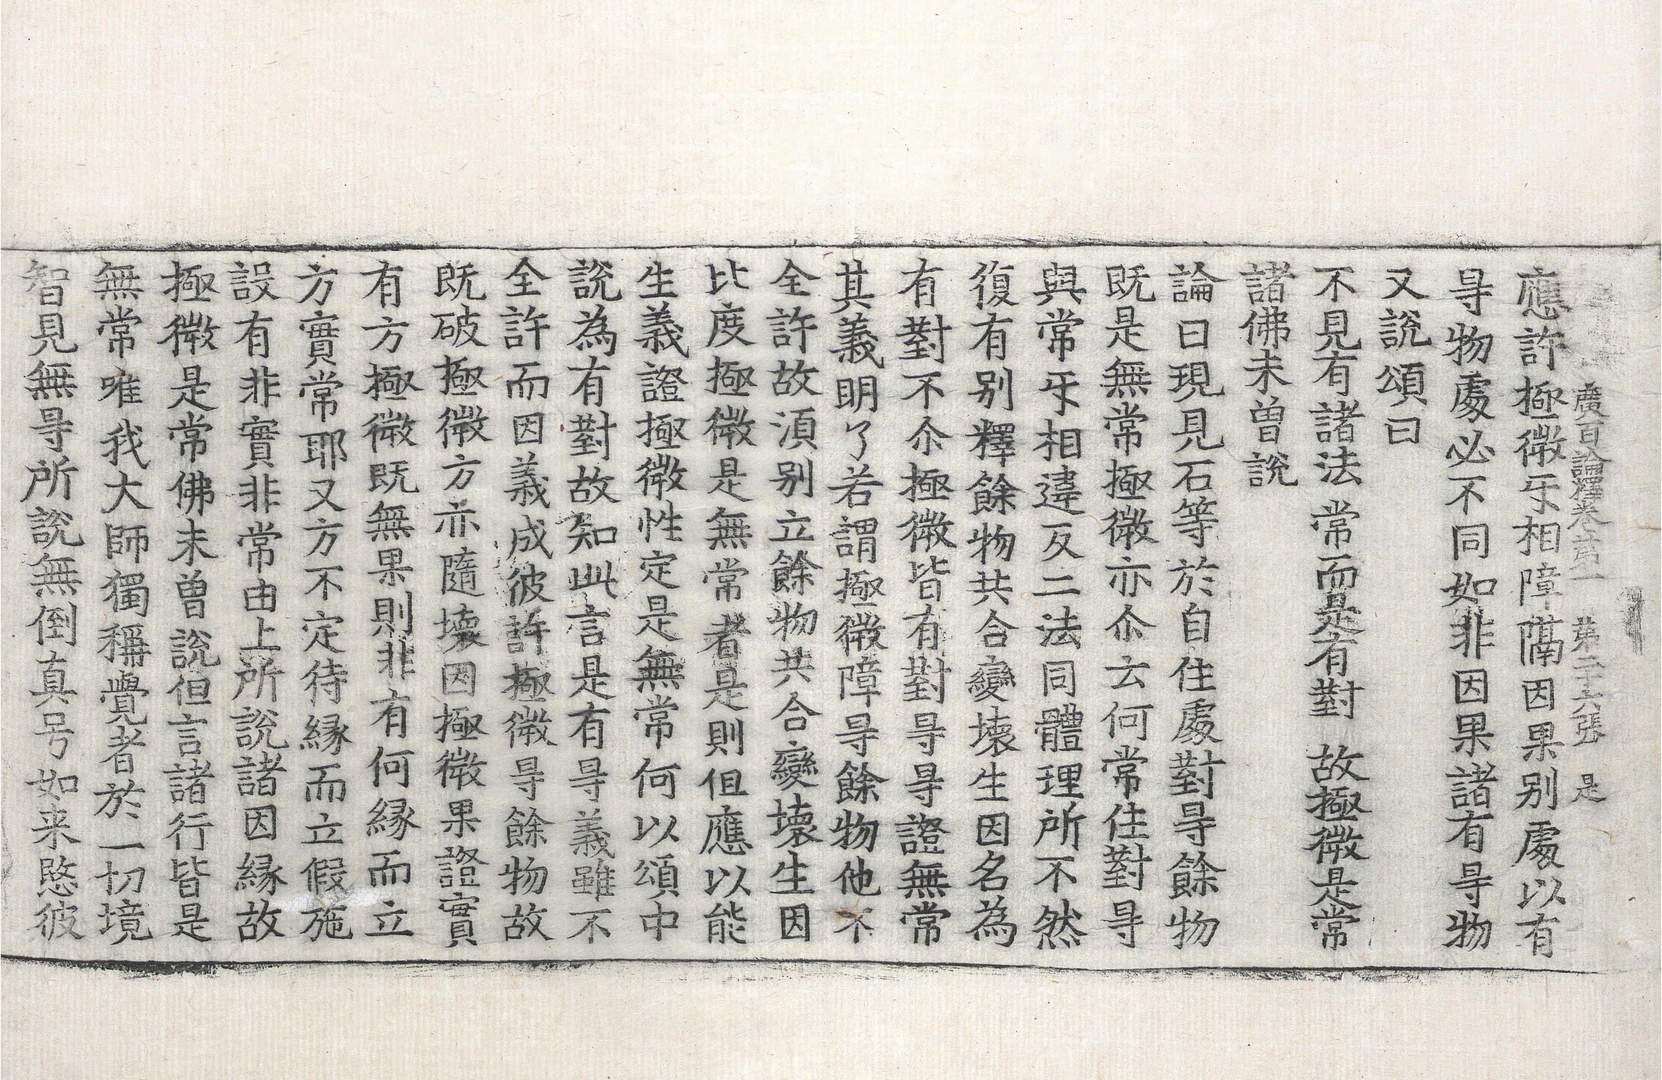 廣百論釋卷第一 第二十六張 是
應許極微㸦相障隔因果別處以有
㝵物處必不同如非因果諸有㝵物
又說頌曰
不見有諸法 常而是有對 故極微是常
諸佛未曾說
論曰現見石等於自住處對㝵餘物
既是無常極微亦尒云何常住對㝵
與常㸦相違反二法同體理所不然
復有別釋餘物共合變壞生因名為
有對不尒極微皆有對㝵㝵證無常
其義明了若謂極微障㝵餘物他不
全許故須別立餘物共合變壞生因
比度極微是無常者是則但應以能
生義證極微性定是無常何以頌中
說為有對故知此言是有㝵義雖不
全許而因義成彼許極微㝵餘物故
既破極微方亦隨壞因極微果證實
有方極微既無果則非有何緣而立
方實常耶又方不定待緣而立假施
設有非實非常由上所說諸因緣故
極微是常佛未曾說但言諸行皆是
無常唯我大師獨稱覺者於一切境
智見無㝵所說無倒真号如来愍彼